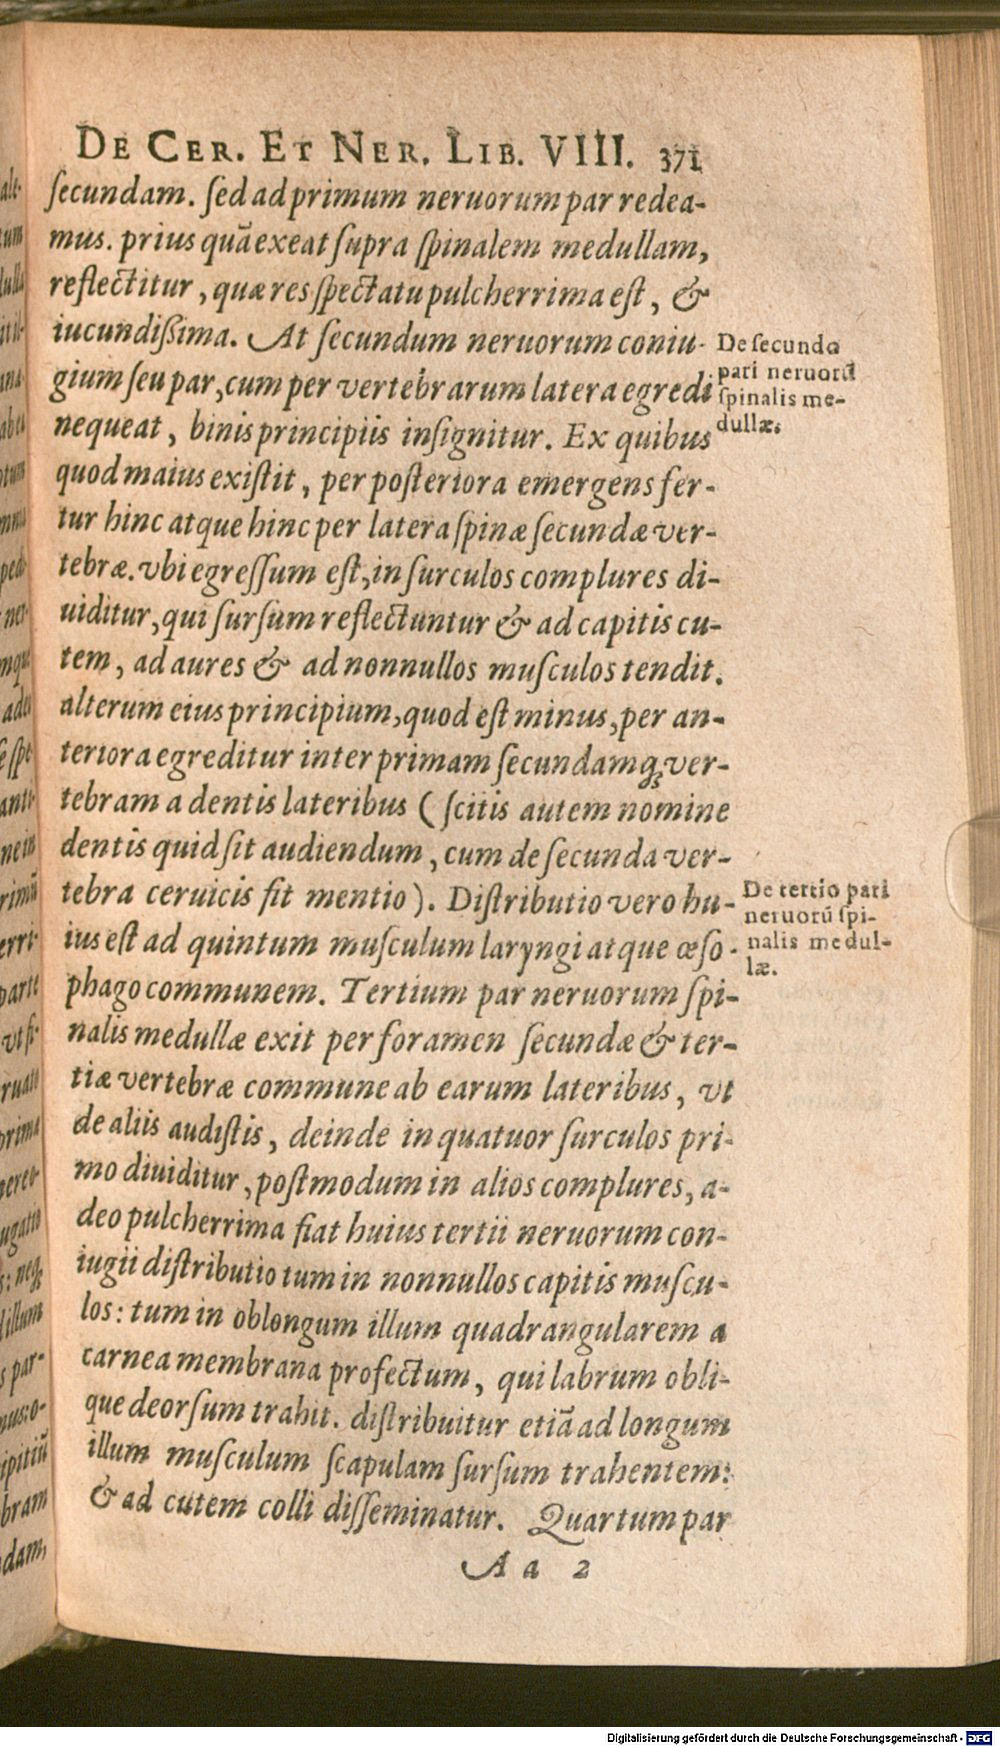 DE CER. ET NER. LIB. VIII. 371
secundam. sed ad primum neruorum par redea-
mus. prius quā exeat supra spinalem medullam,
reflectitur, quæ res spectatu pulcherrima est, &
iucundißima. At secundum neruorum coniu-
gium seu par, cum per vertebrarum latera egredi
nequeat, binis principiis insignitur. Ex quibus
quod maius existit, per posteriora emergens fer-
tur hinc atque hinc per latera spinæ secundæ ver-
tebræ. vbi egressum est, in surculos complures di-
uiditur, qui sursum reflectuntur & ad capitis cu-
tem, ad aures & ad nonnullos musculos tendit.
alterum eius principium, quod est minus, per an-
teriora egreditur inter primam secundamq; ver-
tebram a dentis lateribus ( scitis autem nomine
dentis quid sit audiendum, cum de secunda ver-
tebra ceruicis fit mentio ). Distributio vero hu-
ius est ad quintum musculum laryngi atque œso-
phago communem. Tertium par neruorum spi-
nalis medullæ exit per foramen secundæ & ter-
tiæ vertebræ commune ab earum lateribus, vt
de aliis audistis, deinde in quatuor surculos pri-
mo diuiditur, postmodum in alios complures, a-
deo pulcherrima fiat huius tertii neruorum con-
iugii distributio tum in nonnullos capitis muscu-
los: tum in oblongum illum quadrangularem a
carnea membrana profectum, qui labrum obli-
que deorsum trahit. distribuitur etiā ad longum
illum musculum scapulam sursum trahentem:
& ad cutem colli disseminatur. Quartum par
Aa 2
De secundo
pari neruorū
spinalis me-
dullæ.
De tertio pari
neruorū spi-
nalis medul-
læ.
Digitalisierung gefördert durch die Deutsche Forschungsgemeinschaft - DFG